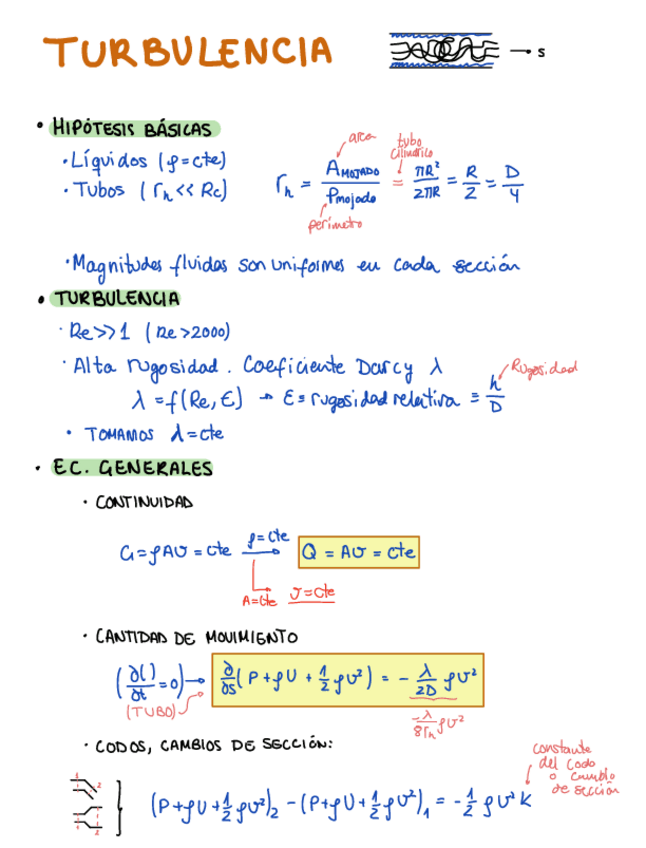 TURBULENCIA
→ s
• HIPÓTESIS BÁSICAS
• Líquidos (ρ=cte)
• Tubos (r_h << Rc)
r_h = A_MOJADO / P_mojado = πR² / 2πR = R/2 = D/4
area
tubo cilíndrico
perímetro
• Magnitudes fluidas son uniformes en cada sección
• TURBULENCIA
• Re>>1 (Re>2000)
• Alta rugosidad. Coeficiente Darcy λ
λ = f(Re, ε) → ε ≡ rugosidad relativa ≡ h/D
Rugosidad
• TOMAMOS λ=cte
• EC. GENERALES
• CONTINUIDAD
G = ρAv = cte → ρ=cte Q = Av = cte
A=cte v=cte
• CANTIDAD DE MOVIMIENTO
(∂()/∂t = 0) → ∂/∂s (P + ρU + 1/2 ρv²) = - λ/2D ρv²
(TUBO)
-λ/8r_h ρv²
• CODOS, CAMBIOS DE SECCIÓN:
constante del codo o cambio de sección
1 2
1 2
} (P+ρU+1/2 ρv²)₂ - (P+ρU+1/2 ρv²)₁ = - 1/2 ρv²K